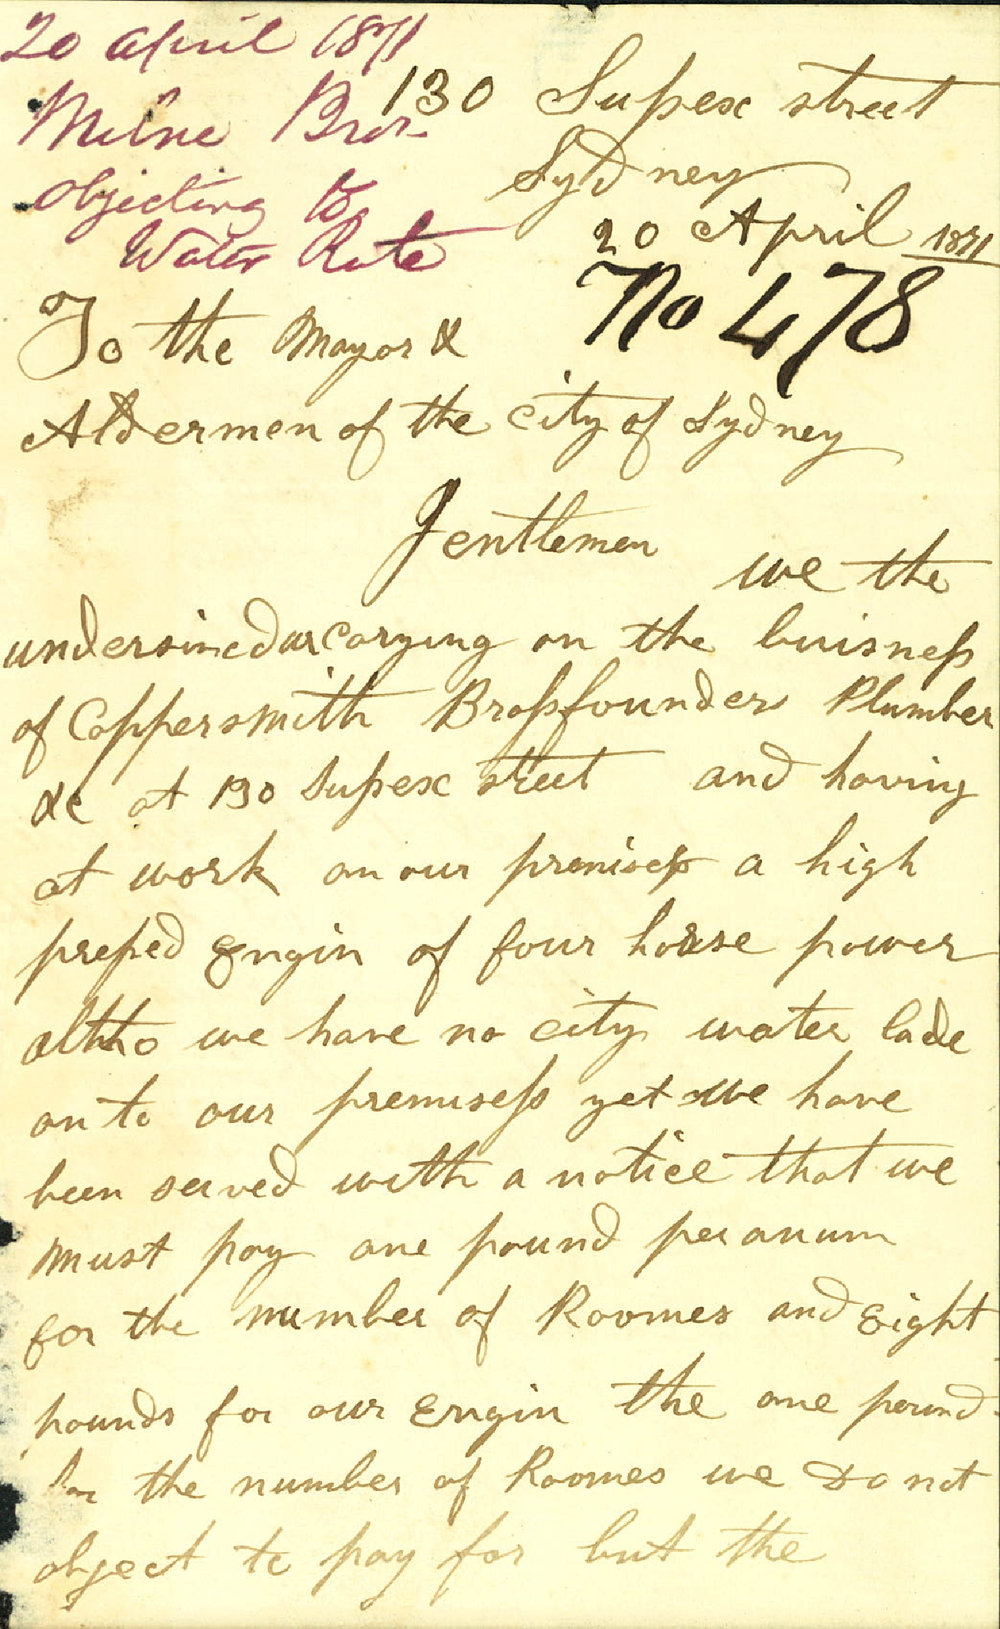 20 April 1871
Milne Bros
objecting to
Water Rate
130 Sussex street
Sydney
20 April 1871
No 478
To the Mayor &
Aldermen of the city of Sydney
Gentlemen
we the
undersined ar carying on the buisness
of Coppersmith Brassfounder Plumber
&c at 130 Sussex street and having
at work on our premises a high
pressed Engin of four horse power
altho we have no city water lade
on to our premisess yet we have
been served with a notice that we
must pay one pound per anum
for the number of Roomes and Eight
pounds for our Engin the one pound
for the number of Roomes we Do not
object to pay for but the